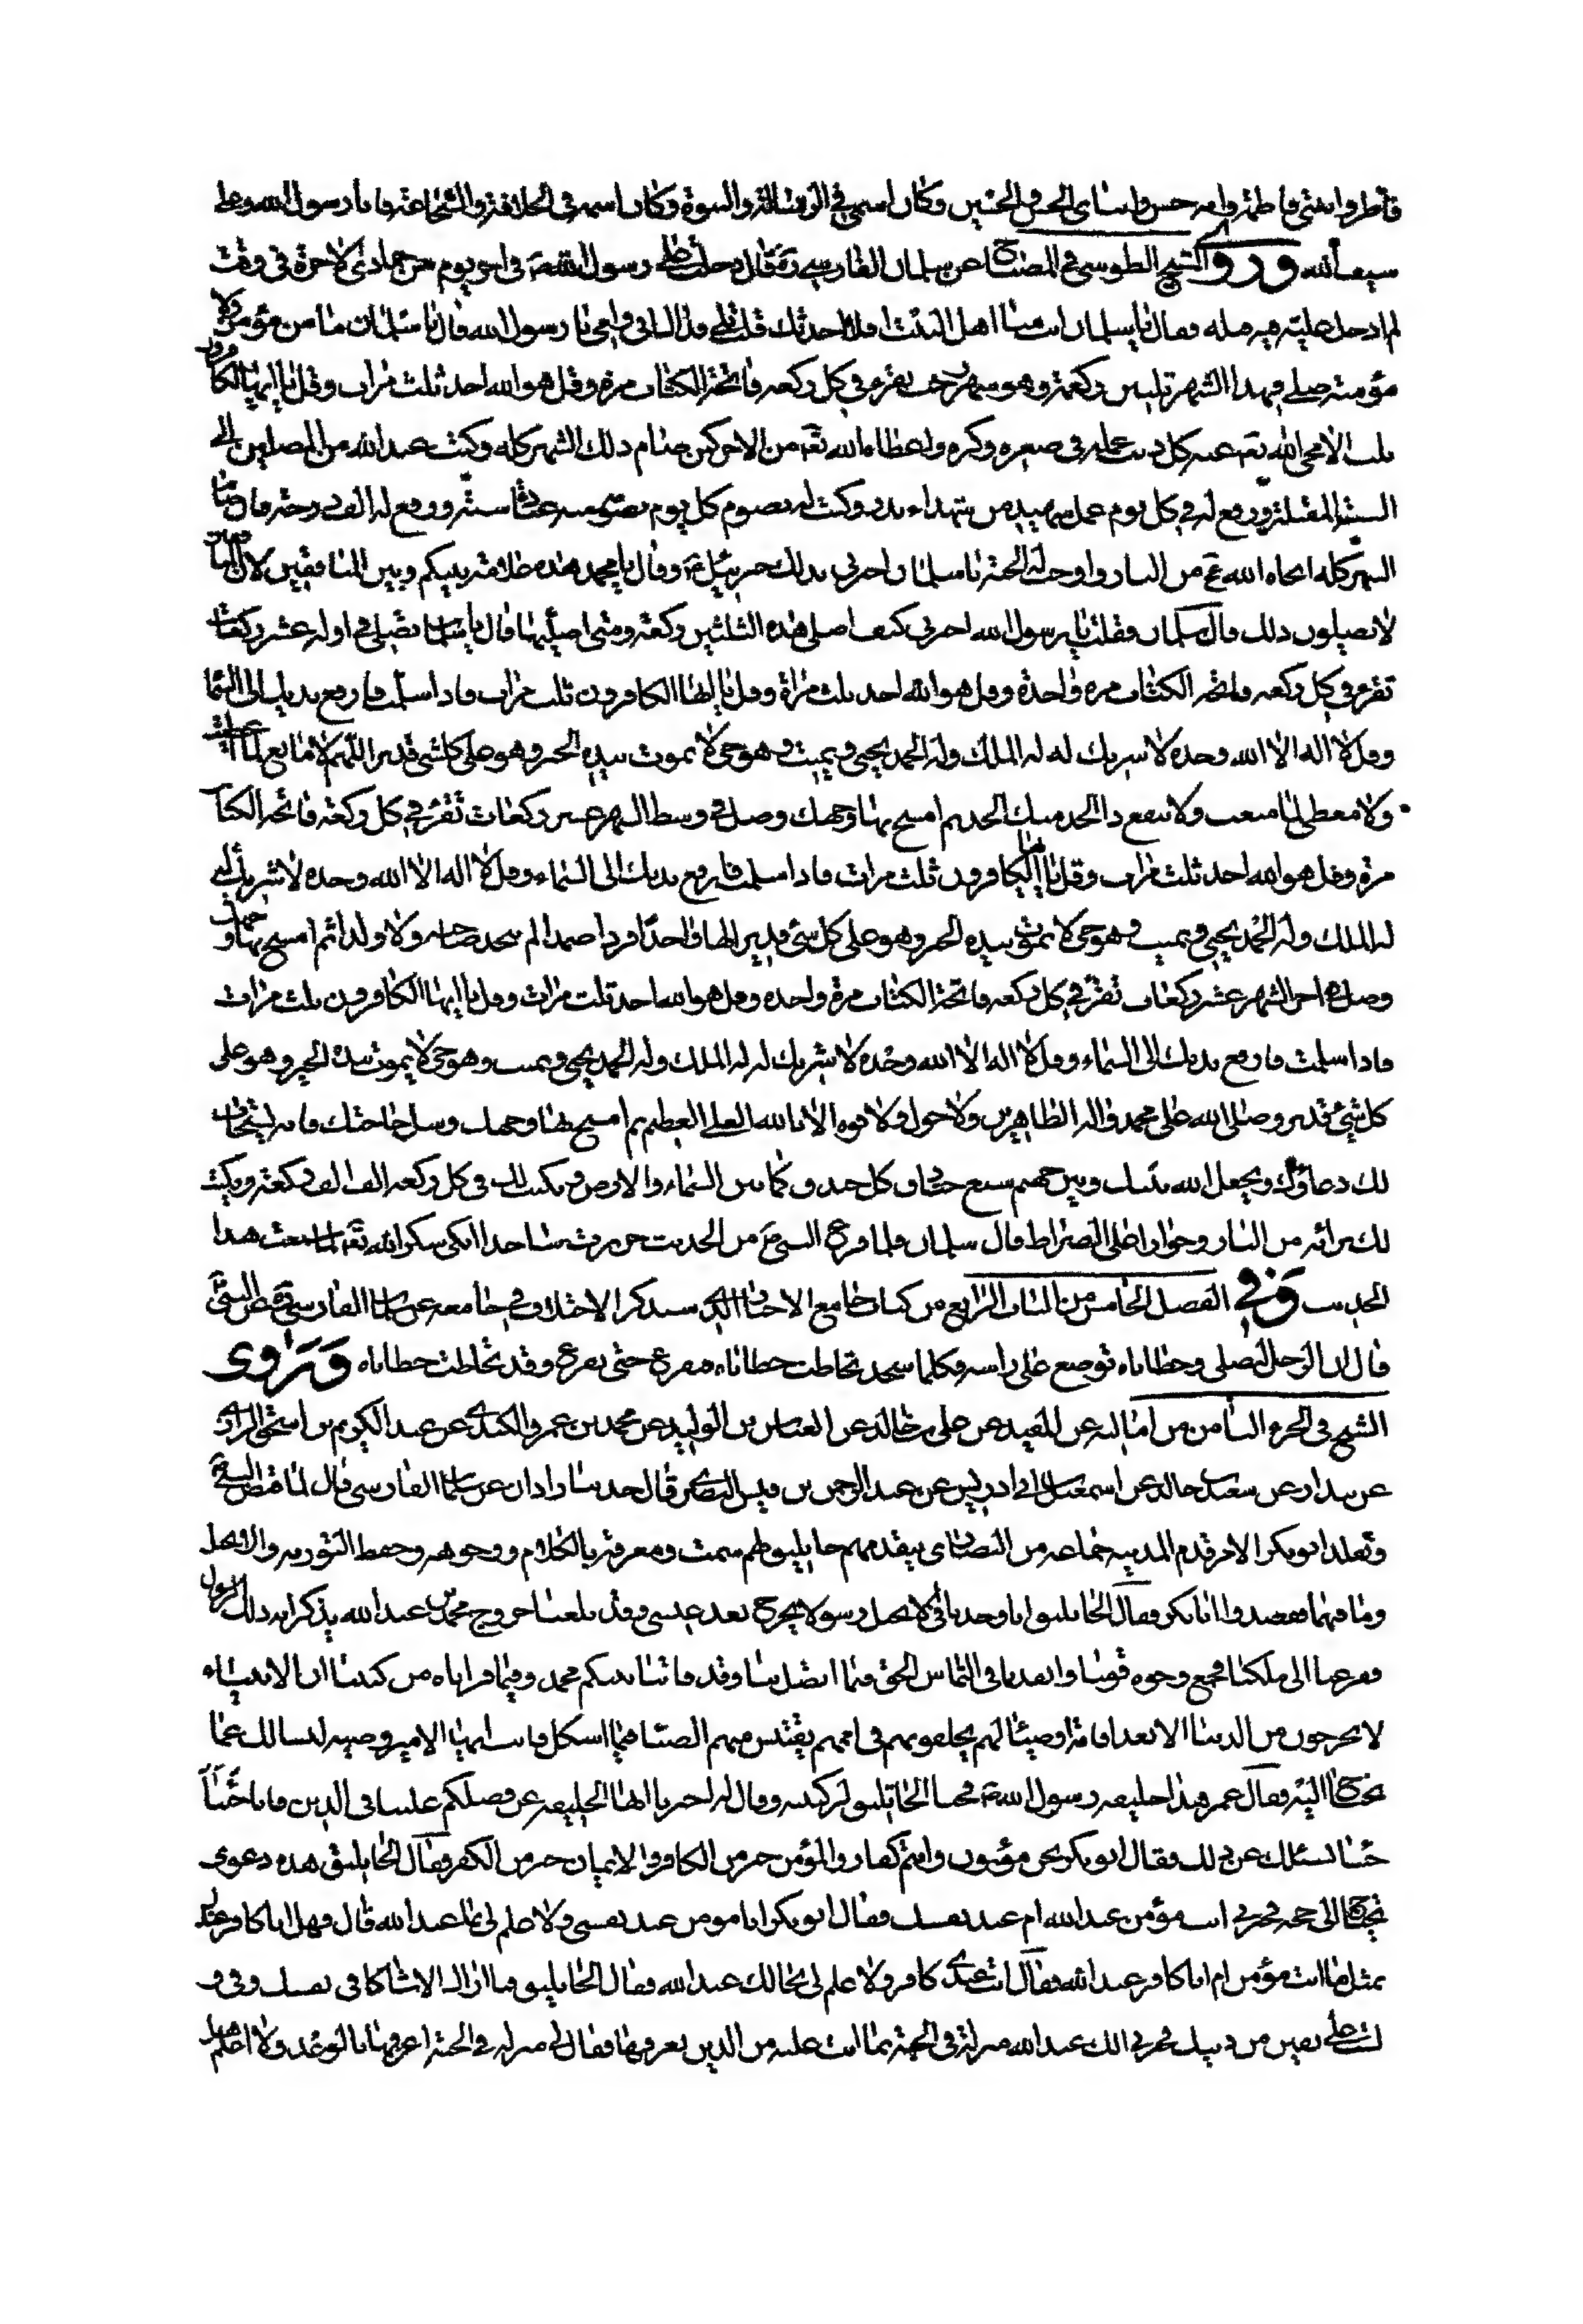 فاطر وابنتي فاطمة وابنه حسن وابناي الحسن والحسين وكان اسمي في الرسالة والنبوة وكان اسمه في الخلافة والشجاعة فانا رسول الله وعلي
سيف الله وروى الشيخ الطوسي في المصباح عن سلمان الفارسي ره قال دخلت على رسول الله ص في اخر يوم من جمادى الاخرة في وقت
لم ادخل عليه فيه قبله فقال يا سلمان انت منا اهل البيت افلا احدثك قلت بلى فداك ابي وامي يا رسول الله قال يا سلمان ما من مؤمن ولا
مؤمنة صلى في هذا الشهر ثلثين ركعة وهو شهر رجب يقرء في كل ركعة فاتحة الكتاب مرة وقل هو الله احد ثلث مرات وقل يا ايها الكافرون
ثلث الا محى الله تع عنه كل ذنب عمله في صغره وكبره واعطاه الله تع من الاجر كمن صام ذلك الشهر كله وكتب عند الله من المصلين الى
السنة المقبلة ورفع له في كل يوم عمل شهيد من شهداء بدر وكتب له بصوم كل يوم يصومه منه عبادة سنة ورفع له الف درجة فان صام
الشهر كله انجاه الله عج من النار واوجب له الجنة يا سلمان اخبرني بذلك جبرئيل ع وقال يا محمد هذه علامة بينكم وبين المنافقين لان المنافقين
لا يصلون ذلك قال سلمان فقلت يا رسول الله اخبرني كيف اصلي هذه الثلثين ركعة ومتى اصليها قال يا سلمان تصلي في اوله عشر ركعات
تقرء في كل ركعة فاتحة الكتاب مرة واحدة وقل هو الله احد ثلث مراة وقل يا ايها الكافرون ثلث مرات فاذا سلمت فارفع يديك الى السما
وقل لا اله الا الله وحده لا شريك له له الملك وله الحمد يحيي ويميت وهو حي لا يموت بيده الخير وهو على كل شئ قدير اللهم لا مانع لما اعطيت
ولا معطي لما منعت ولا ينفع ذا الجد منك الجد ثم امسح بهما وجهك وصل في وسط الشهر عشر ركعات تقرء في كل ركعة فاتحة الكتاب
مرة وقل هو الله احد ثلث مرات وقل يا ايها الكافرون ثلث مرات فاذا سلمت فارفع يديك الى السماء وقل لا اله الا الله وحده لا شريك له
له الملك وله الحمد يحيي ويميت وهو حي لا يموت بيده الخير وهو على كل شئ قدير الها واحدا فردا صمدا لم يتخذ صاحبة ولا ولدا ثم امسح بهما وجهك
وصل في اخر الشهر عشر ركعات تقرء في كل ركعة فاتحة الكتاب مرة واحدة وقل هو الله احد ثلث مرات وقل يا ايها الكافرون ثلث مرات
فاذا سلمت فارفع يديك الى السماء وقل لا اله الا الله وحده لا شريك له له الملك وله الحمد يحيي ويميت وهو حي لا يموت بيده الخير وهو على
كل شئ قدير وصلى الله على محمد واله الطاهرين ولا حول ولا قوة الا بالله العلي العظيم ثم امسح بهما وجهك وسل حاجتك فانه يستجاب
لك دعاؤك ويجعل الله بينك وبين جهنم سبع خنادق كل خندق كما بين السماء والارض ويكتب لك في كل ركعة الف الف ركعة ويكتب
لك برائة من النار وجوازا على الصراط قال سلمان فلما فرغ النبي ص من الحديث خررت ساجدا ابكي شكرا لله تع لما سمعت هذا
الحديث وفي الفصل الخامس من الباب الرابع من كتاب جامع الاخبار الذي سنذكر الاختلاف في جامعه عن سلمان الفارسي ره عن النبي ص
قال ان الرجل ليصلي وخطاياه توضع على راسه فكلما سجد تحاطت خطاياه فيفرغ حتى يفرغ وقد تحاطت خطاياه وروى
الشيخ في الجزء الثامن من اماليه عن المفيد عن علي بن خالد عن العباس بن الوليد عن محمد بن عمرو الكندي عن عبد الكريم بن اسحق الرازي
عن بندار عن سعيد بن خالد عن اسمعيل بن ابي ادريس عن عبد الرحمن بن قيس البصري قال حدثنا زاذان عن سلمان الفارسي قال لما قبض النبي ص
وتقلد ابو بكر الامر قدم المدينة جماعة من النصارى يتقدمهم جاثليق لهم سمت ومعرفة بالكلام ووجوهه وحفظ التورية والانجيل
وما فيهما فقصدوا ابا بكر فقال الجاثليق انا وجدنا في الانجيل رسولا يخرج بعد عيسى وقد بلغنا خروج محمد بن عبد الله يذكر انه ذلك الرسول
ففزعنا الى ملكنا فجمع وجوه قومنا وانفذنا في التماس الحق فيما اتصل بنا وقد فاتنا نبيكم محمد وفيما قراناه من كتبنا ان الانبياء
لا يخرجون من الدنيا الا بعد اقامة اوصياء لهم يخلفونهم في اممهم يقتبس منهم الضياء فيما اشكل فانت ايها الامير وصيه لنسالك عما
نحتاج اليه فقال عمر هذا خليفة رسول الله ص فجثا الجاثليق لركبتيه وقال له اخبرنا ايها الخليفة عن فضلكم علينا في الدين فانا جئنا
جئنا لنسئلك عن ذلك فقال ابو بكر نحن مؤمنون وانتم كفار والمؤمن خير من الكافر والايمان خير من الكفر فقال الجاثليق هذه دعوى
تحتاج الى حجة فخبرني انت مؤمن عند الله ام عند نفسك فقال ابو بكر انا مؤمن عند نفسي ولا علم لي بما عند الله قال فهل انا كافر عندك
بمثل ما انت مؤمن ام انا كافر عند الله فقال انت عندي كافر ولا علم لي بحالك عند الله فقال الجاثليق فما اراك الا شاكا في نفسك وفي و
لست على يقين من دينك فخبرني الك عند الله منزلة في الجنة بما انت عليه من الدين تعرفها فقال لي منزلة في الجنة اعرفها بالوعد ولا اعلم هل